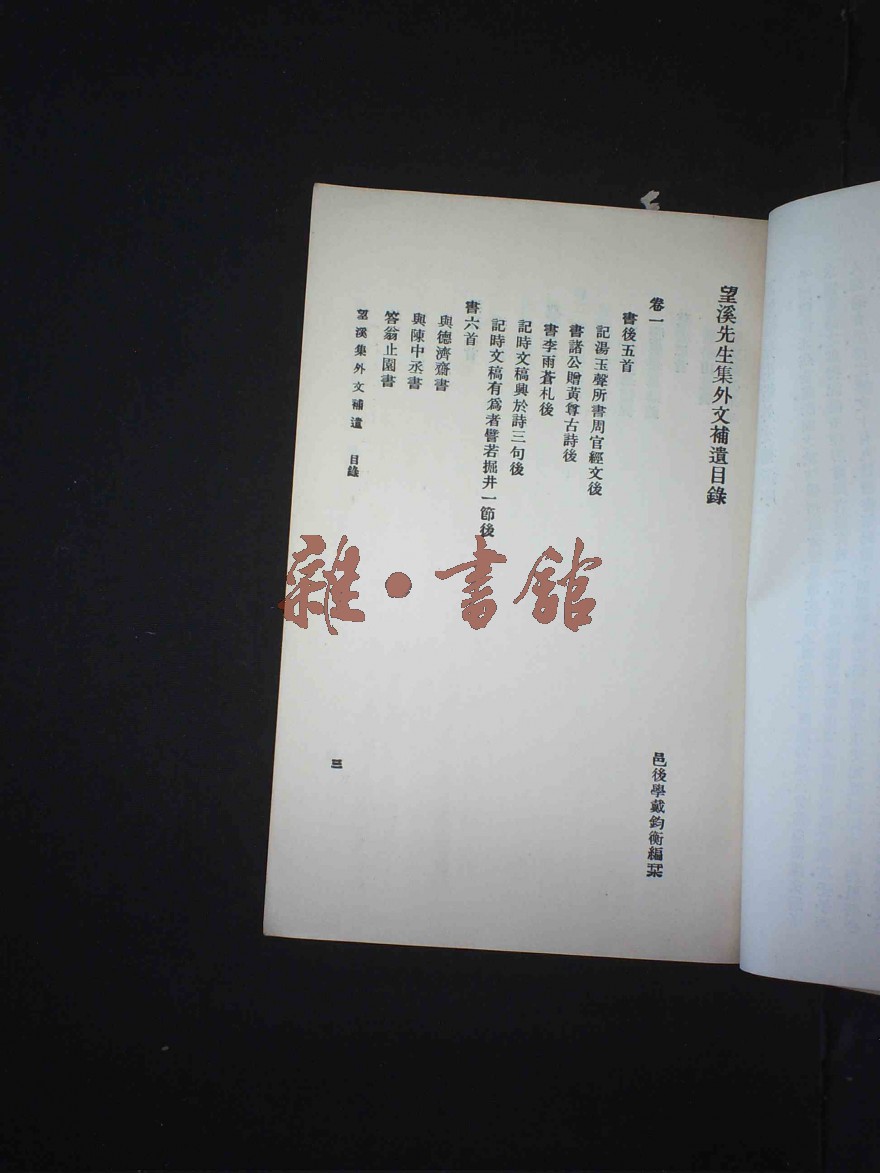 望溪先生集外文補遺目錄
邑後學戴鈞衡編栞
卷一
書後五首
記湯玉聲所書周官經文後
書諸公贈黃尊古詩後
書李雨蒼札後
記時文稿興於詩三句後
記時文稿有爲者譬若掘井一節後
書六首
與德濟齋書
與陳中丞書
答翁止園書
望溪集外文補遺 目錄
三
雜·書館